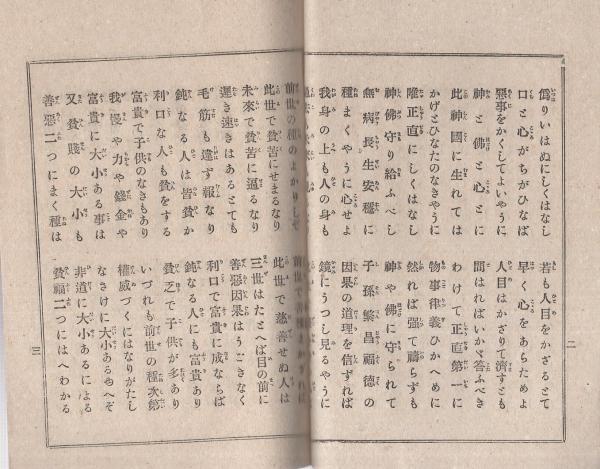 偽りいはぬにしくはなし
若も人目をかざるとて
口と心がちがひなば
早く心をあらためよ
惡事をかくしてよいやうに
人目はかざりて濟すとも
神と佛と心とに
問はればいかゞ答ふべき
此神國に生れては
わけて正直第一に
かげとひなたのなきやうに
物事律義ひかへめに
陰正直にしくはなし
然れば强て禱らずも
神佛守り給ふべし
神や佛に守られて
無病長生安穩に
子孫繁昌福德の
種まくやうに心せよ
因果の道理を信ずれば
我身の上も人の身も
鏡にうつし見るやうに
二
前世の種のよかりしぞ
此世で貧苦にせまるなり
此世で慈善せぬ人は
未來で貧苦に逼るなり
三世はたとへば目の前に
遲き速きはあるとても
善惡因果はうごきなく
毛筋も違ず報なり
利口で富貴に成ならば
鈍なる人は皆貧か
鈍なる人にも富貴あり
利口な人も貧をする
貧乏で子供が多あり
富貴で子供のなきもあり
いづれも前世の種次第
我慢や力や錢金や
權威づくにはなりがたし
富貴に大小ある事は
なさけに大小あるゆへぞ
又貧賤の大小も
非道に大小あるによる
善惡二つにまく種は
貧福二つにはへわかる
三